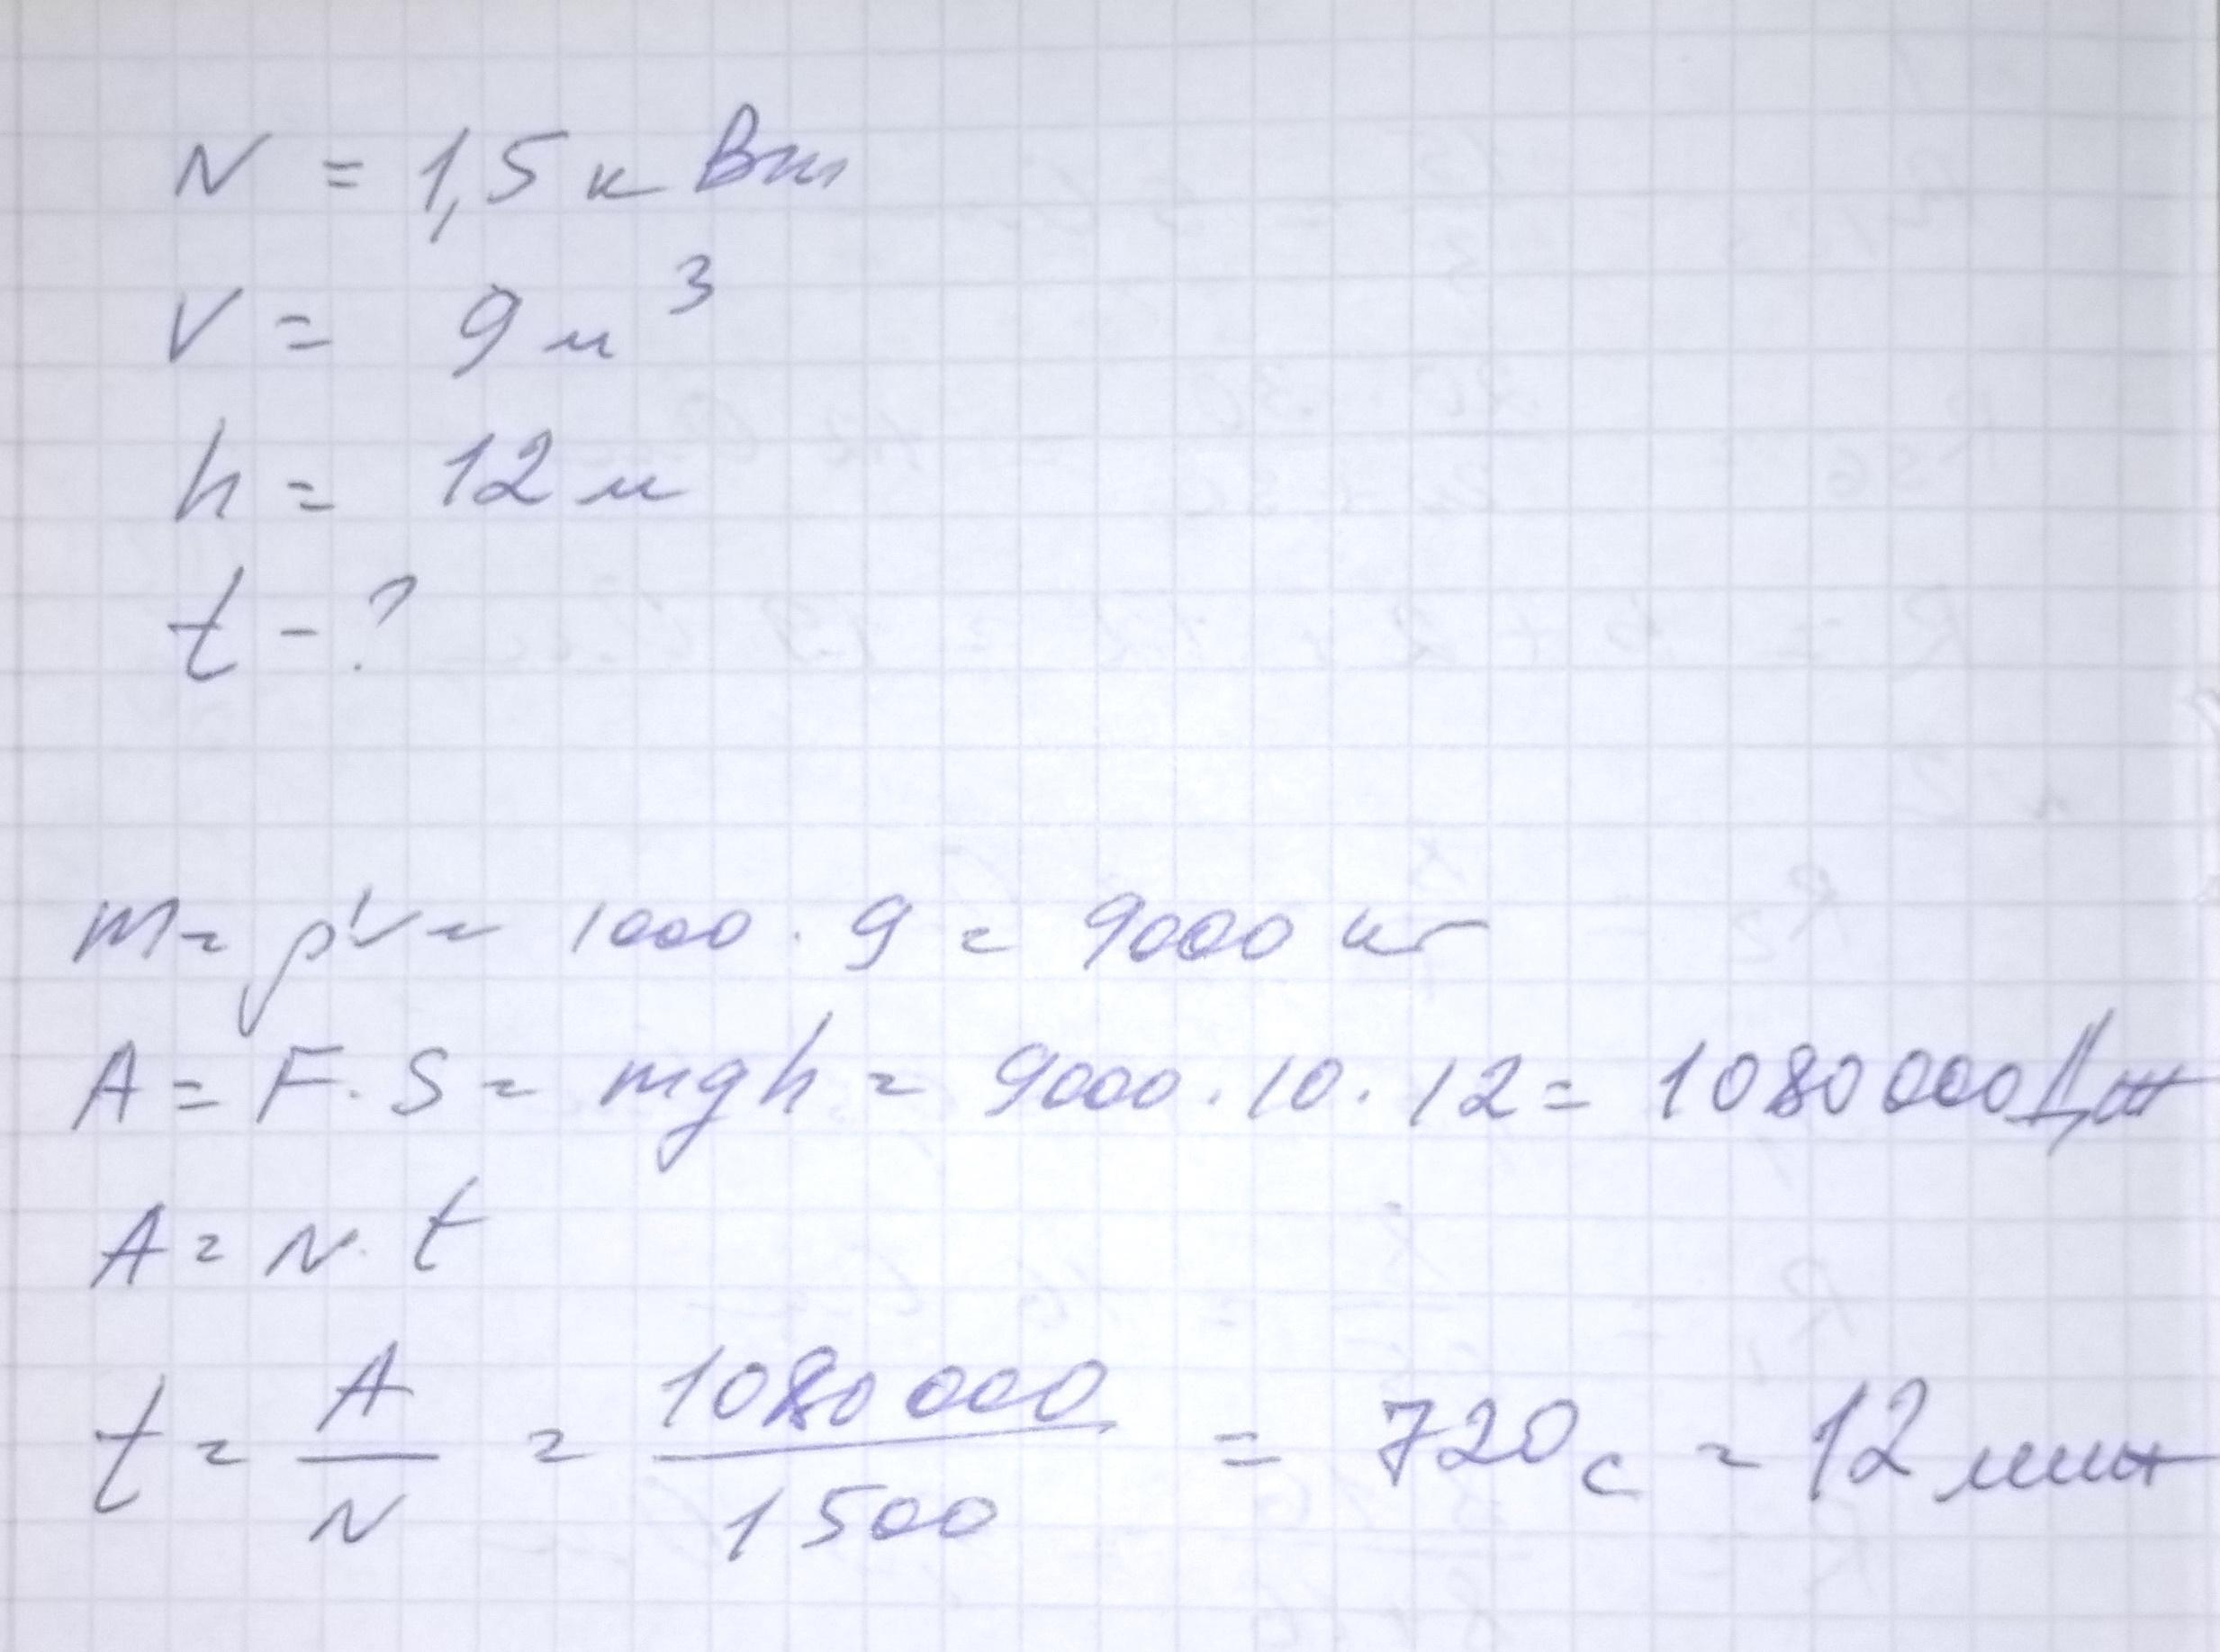 N = 1,5 кВт
V = 9 м³
h = 12 м
t - ?
m = ρV = 1000 · 9 = 9000 кг
A = F · S = mgh = 9000 · 10 · 12 = 1080000 Дж
A = N · t
t = A/N = 1080000/1500 = 720 с = 12 мин